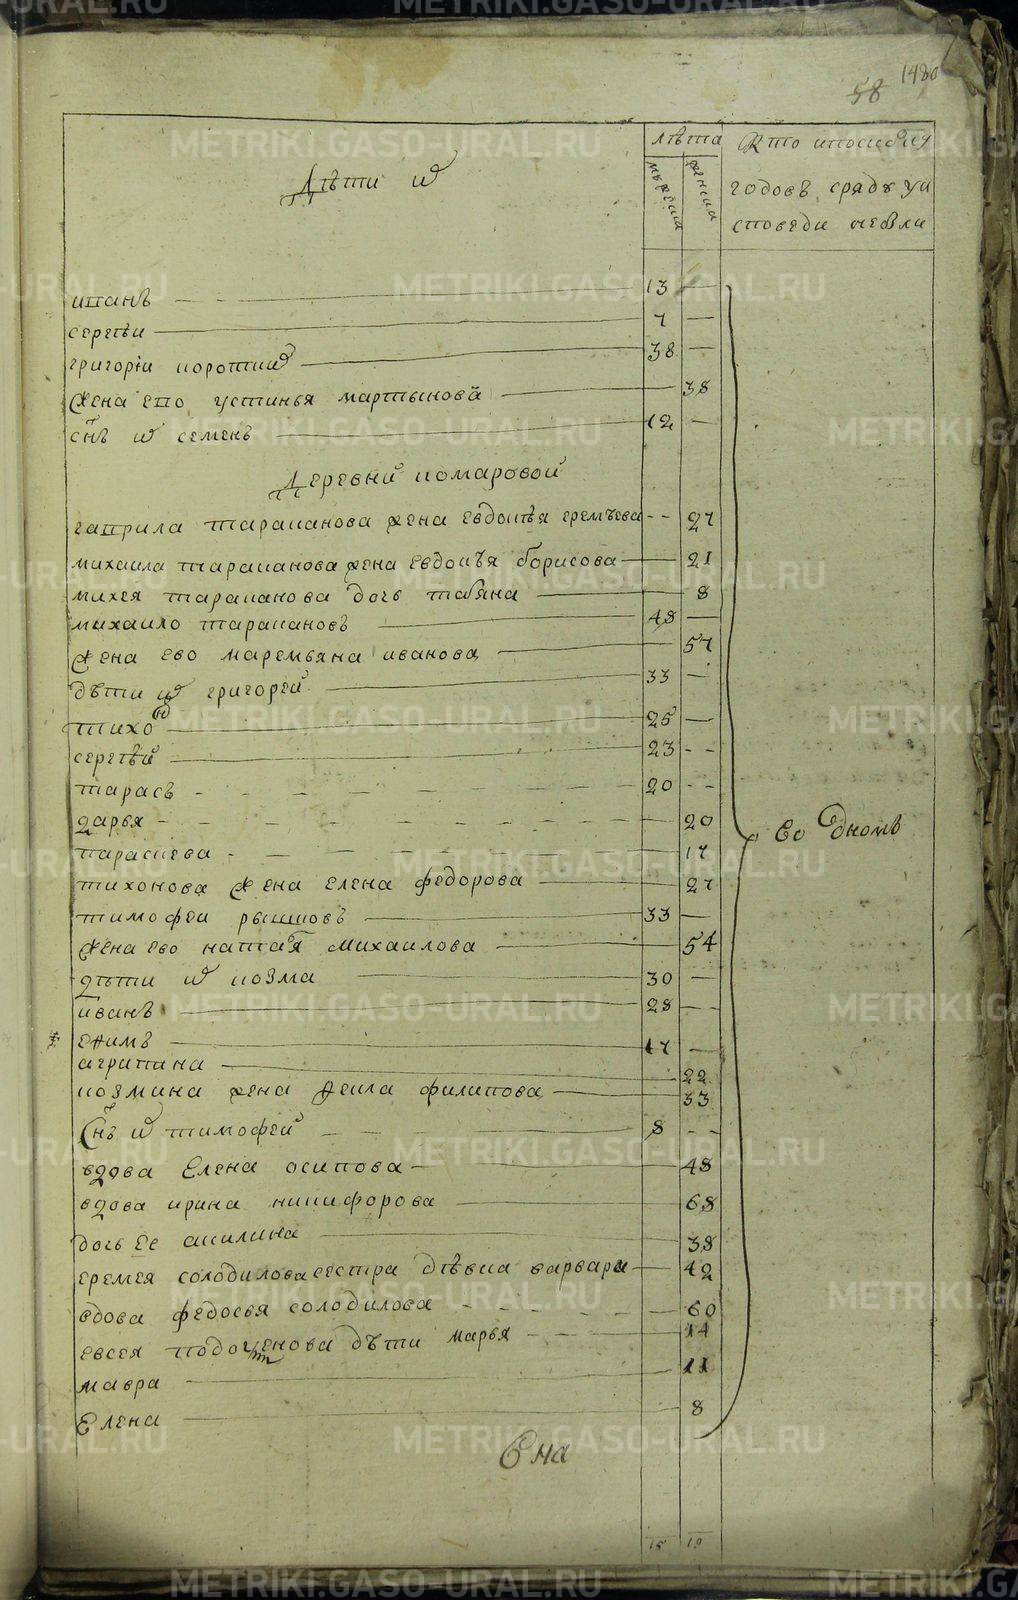 1480
58
лѣта
Кто и поскольку
Дѣти и҃
мужеска
женска
годовъ сряду у и
споведи небыли
иванъ 13
сергѣи 7
григорїи коротких 38
жена ево устинья мартынова 38
сн҃ъ и҃ семенъ 12
Деревни комаровой
гаврила тараканова жена евдокѣя еремѣева 27
михаила тараканова жена евдокѣя борисова 21
михея тараканова дочь татьяна 8
михаило таракановъ 48
жена ево маремьяна иванова 57
дѣти и҃ григорей 33
тихонъ 25
сергѣй 23
тарасъ 20
дарья 20
параскева 17
тихонова жена елена федорова 27
тимофеи рышковъ 33
жена ево наталья михаилова 54
дѣти и҃ козма 30
иванъ 28
екимъ 17
агрипина 22
козмина жена фекла филипова 33
Сн҃ъ и҃ тимофей 8
вдова Елена осипова 48
вдова ирина никифорова 68
дочь Ее акилина 38
еремея солодилова сестра дѣвка варвара 42
вдова федосья солодилова 60
евсея подоченова дѣти марья 14
мавра 11
Елена 8
Во Едномъ
Она
15 19
METRIKI.GASO-URAL.RU